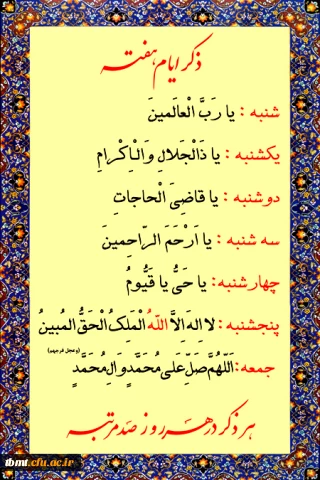 ذکر ایام هفته
شنبه : یا رَبَّ الْعالَمینَ
یکشنبه : یا ذَالْجَلالِ وَالْاِکْرامِ
دوشنبه : یا قاضِیَ الْحاجاتِ
سه شنبه : یا اَرْحَمَ الرّاحِمینَ
چهارشنبه: یا حَیُّ یا قَیُّومُ
پنجشنبه: لا اِلهَ اِلاَّ اللهُ الْمَلِکُ الْحَقُّ الْمُبینُ
جمعه: اَللّهُمَّ صَلِّ عَلی مُحَمَّدٍ وَ الِ مُحَمَّدٍ (وعجل فرجهم)
هر ذکر در هر روز صد مرتبه
tbmt.cfu.ac.ir